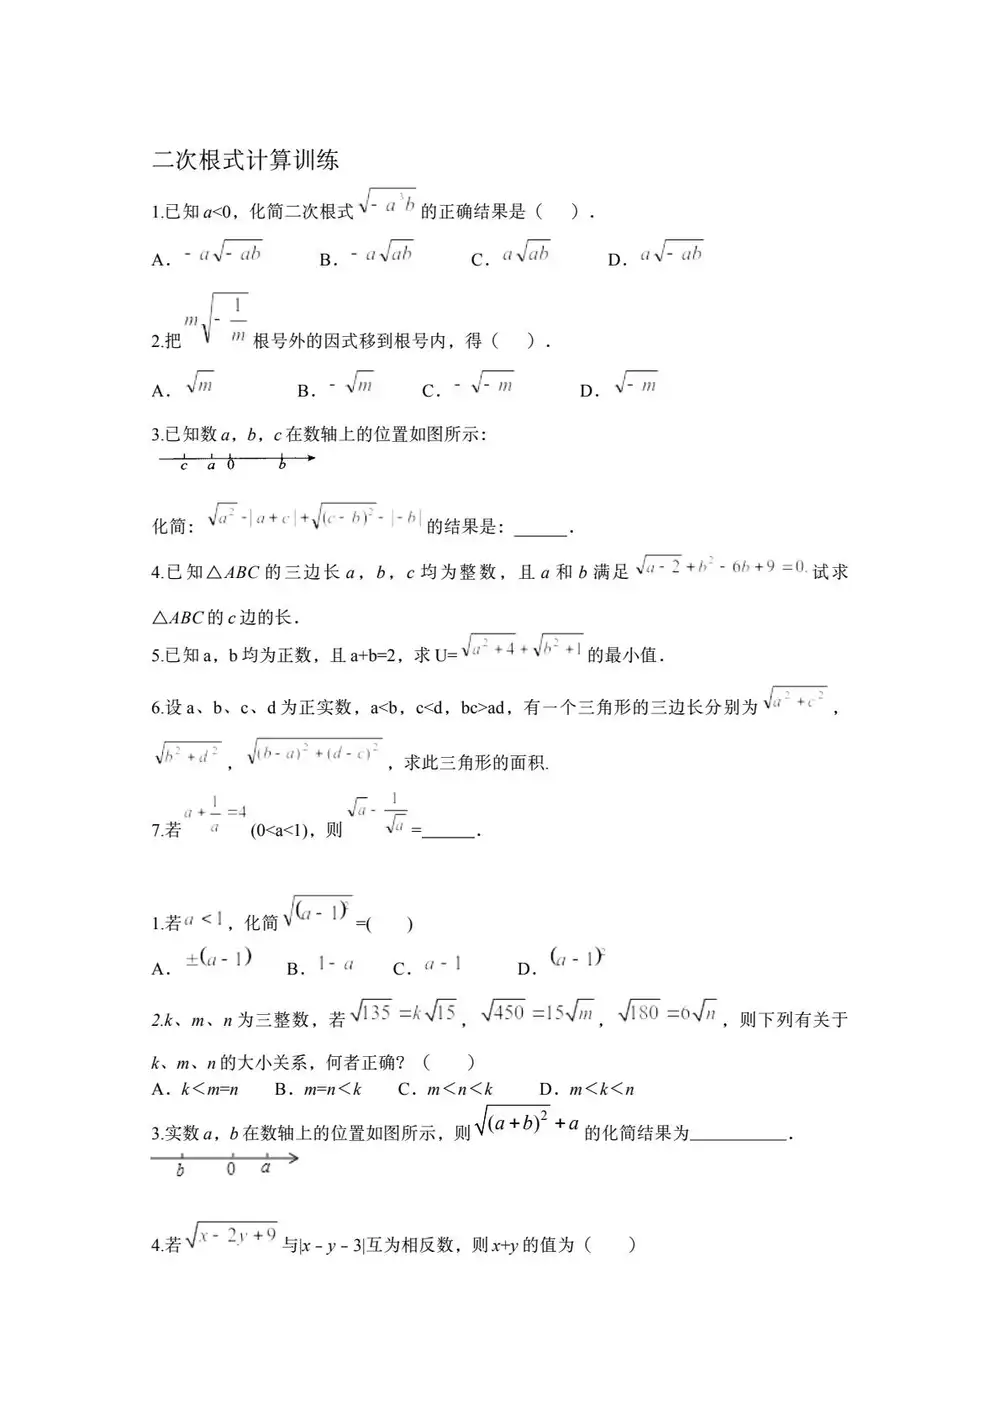 二次根式计算训练
1.已知 a<0，化简二次根式 √(-a³b) 的正确结果是（　　）.
A. -a√(-ab)　　B. -a√(ab)　　C. a√(ab)　　D. a√(-ab)
2.把 m√(-1/m) 根号外的因式移到根号内，得（　　）.
A. √m　　B. -√m　　C. -√(-m)　　D. √(-m)
3.已知数 a，b，c 在数轴上的位置如图所示：
c a 0 b
化简：√(a²)-|a+c|+√((c-b)²)-|-b| 的结果是：______.
4.已知△ABC 的三边长 a，b，c 均为整数，且 a 和 b 满足 √(a-2)+b²-6b+9=0. 试求
△ABC 的 c 边的长.
5.已知 a，b 均为正数，且 a+b=2，求 U=√(a²+4)+√(b²+1) 的最小值.
6.设 a、b、c、d 为正实数，a<b，c<d，bc>ad，有一个三角形的三边长分别为 √(a²+c²)，
√(b²+d²)，√((b-a)²+(d-c)²)，求此三角形的面积.
7.若 a+1/a=4 (0<a<1)，则 √a-1/√a=______.
1.若 a<1，化简 √((a-1)²) =(　　)
A. ±(a-1)　　B. 1-a　　C. a-1　　D. (a-1)²
2.k、m、n 为三整数，若 √135=k√15，√450=15√m，√180=6√n，则下列有关于
k、m、n 的大小关系，何者正确？（　　）
A. k＜m=n　　B. m=n＜k　　C. m＜n＜k　　D. m＜k＜n
3.实数 a，b 在数轴上的位置如图所示，则 √((a+b)²)+a 的化简结果为___________.
b 0 a
4.若 √(x-2y+9) 与|x﹣y﹣3|互为相反数，则 x+y 的值为（　　）